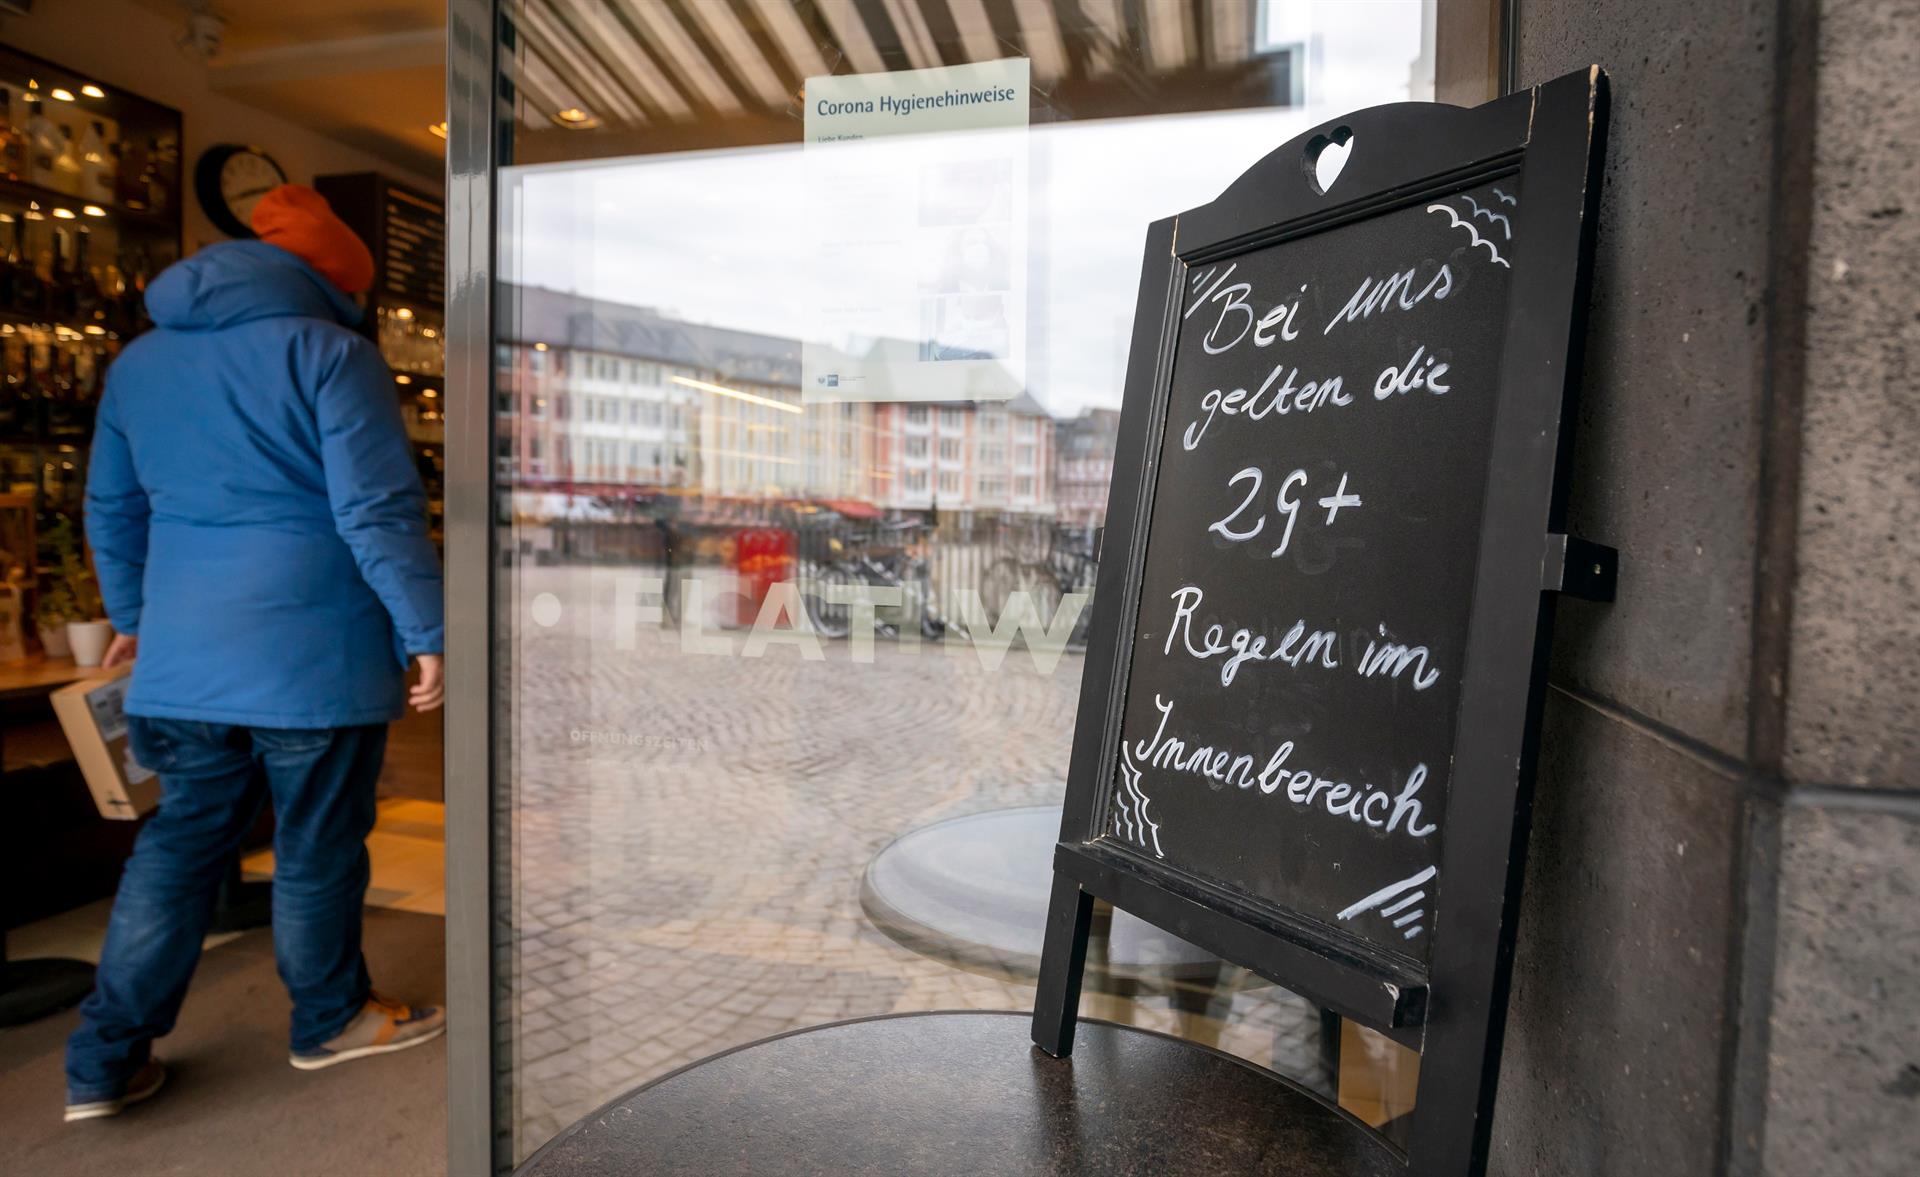 Corona Hygienehinweise
Liebe Kunden
Bei uns
gelten die
2G+
Regeln im
Innenbereich
FLAT W
ÖFFNUNGSZEITEN